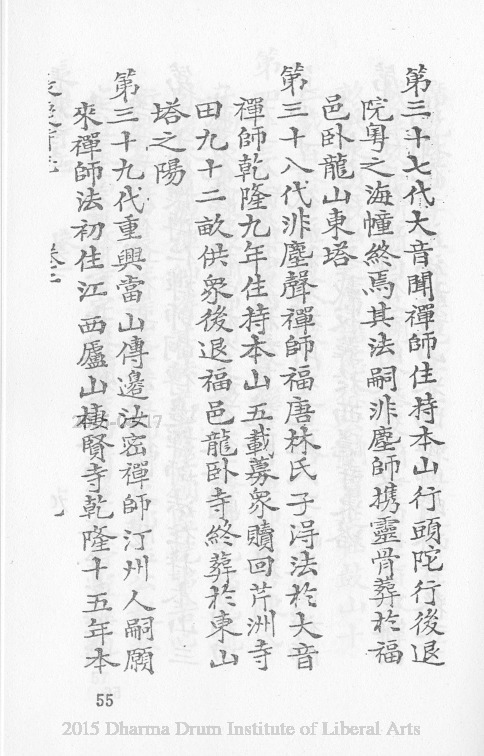 第三十七代大音聞禪師住持本山行頭陀行後退
院粵之海幢終焉其法嗣非塵師携靈骨葬於福
邑卧龍山東塔
第三十八代非塵聲禪師福唐林氏子淂法於大音
禪師乾隆九年住持本山五載募衆贖回芹洲寺
田九十二畝供衆後退福邑龍卧寺終葬於東山
塔之陽
第三十九代重興當山傳邉汝密禪師汀州人嗣願
來禪師法初住江西廬山棲賢寺乾隆十五年本
55
2015 Dharma Drum Institute of Liberal Arts